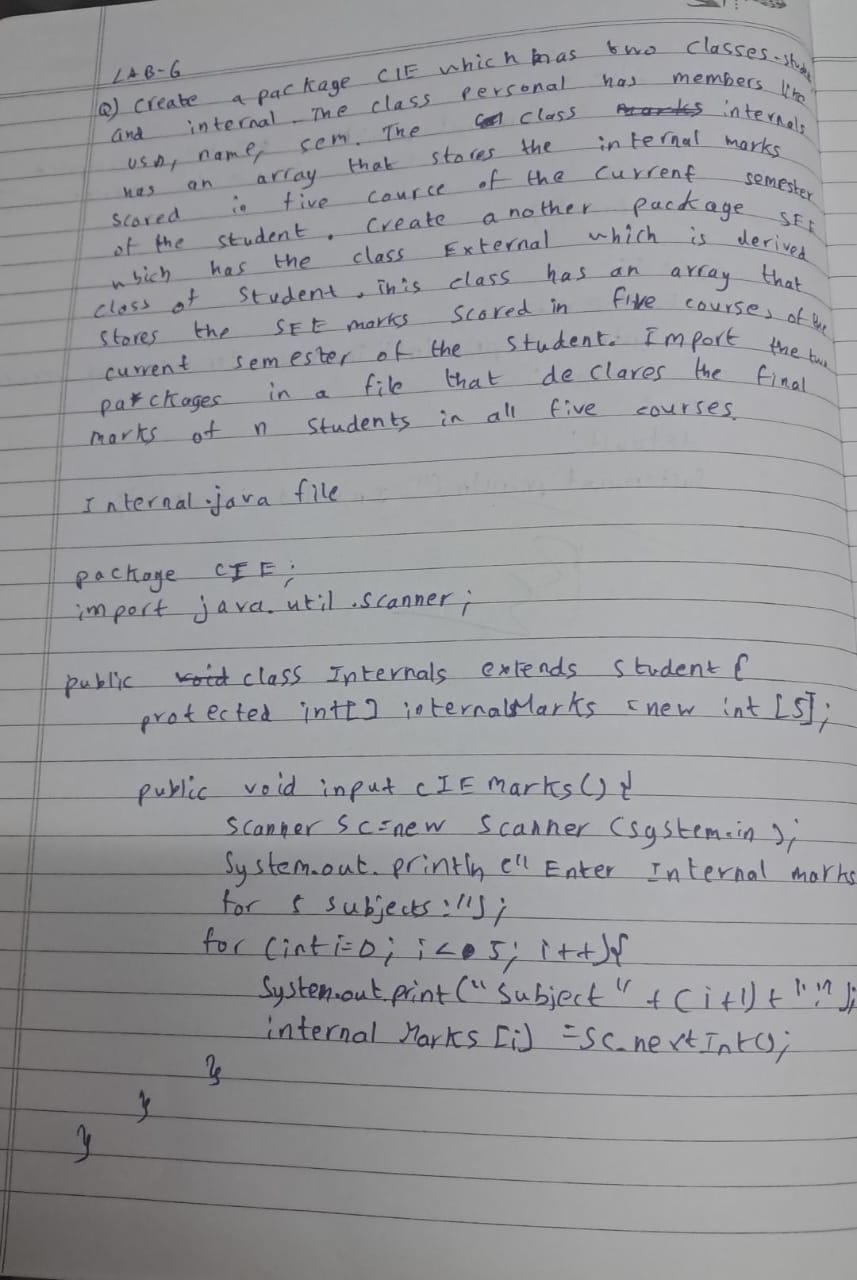 LAB-6
Q) Create a package CIE which has two classes-stude
and internal. The class personal has members like
usn, name, sem. The class internals
has an array that stores the internal marks
scored in five cource of the current semester
of the student. Create another package SEE
which has the class External which is derived
class of Student. This class has an array that
stores the SEE marks scored in five courses of the
current semester of the student. Import the two
packages in a file that declares the final
marks of n students in all five courses.
Internal.java file
package CIE;
import java.util.scanner;
public void class Internals extends student {
protected int[] internalMarks = new int [5];
public void input CIE marks() {
Scanner sc=new Scanner (system.in);
System.out.println (" Enter Internal marks
for 5 subjects:");
for (int i=0; i<5; i++){
System.out.print(" Subject " + (i+1) + ":");
internal Marks [i] =sc.nextInt();
}
}
}